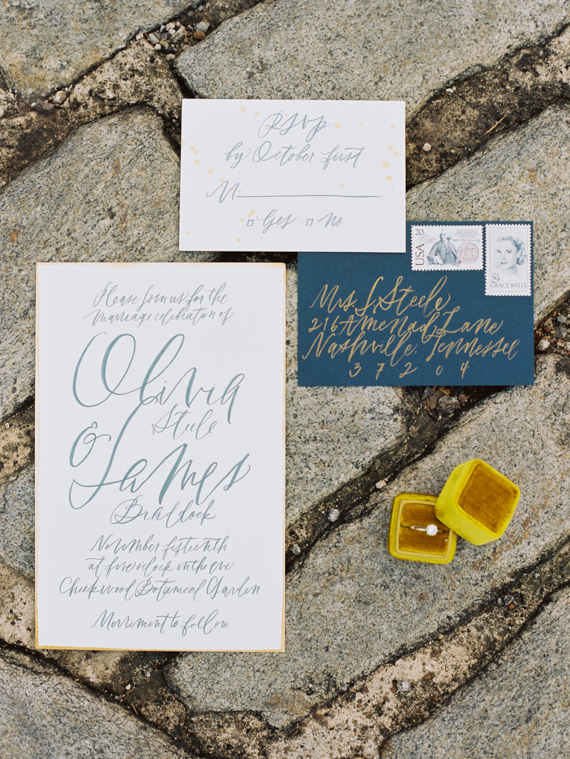 RSVP
by October first
M
Yes No
USA 20
29
GRACE KELLY
Mrs. S. Steele
216 Lane
Nashville, Tennessee
37204
Please join us for the
marriage celebration of
Olivia
Steele
&
James
Braddock
November fifteenth
at five o'clock in the eve
Cheekwood Botanical Garden
Merriment to follow